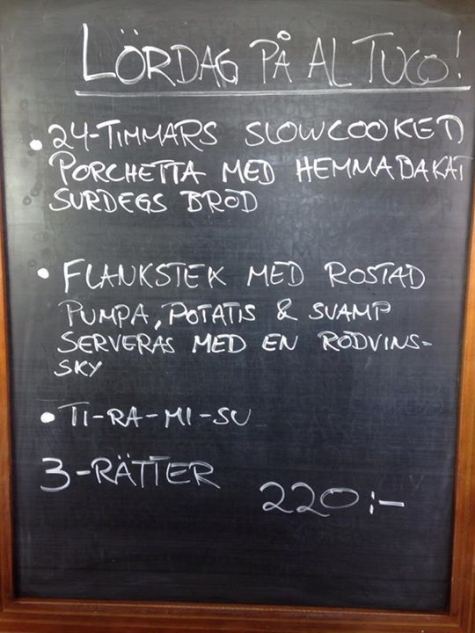 LÖRDAG PÅ AL TUCO!
• 24-TIMMARS SLOWCOOKED
PORCHETTA MED HEMMABAKAT
SURDEGS BRÖD
• FLANKSTEK MED ROSTAD
PUMPA, POTATIS & SVAMP
SERVERAS MED EN RÖDVINS-
SKY
• TI-RA-MI-SU
3-RÄTTER
220:-